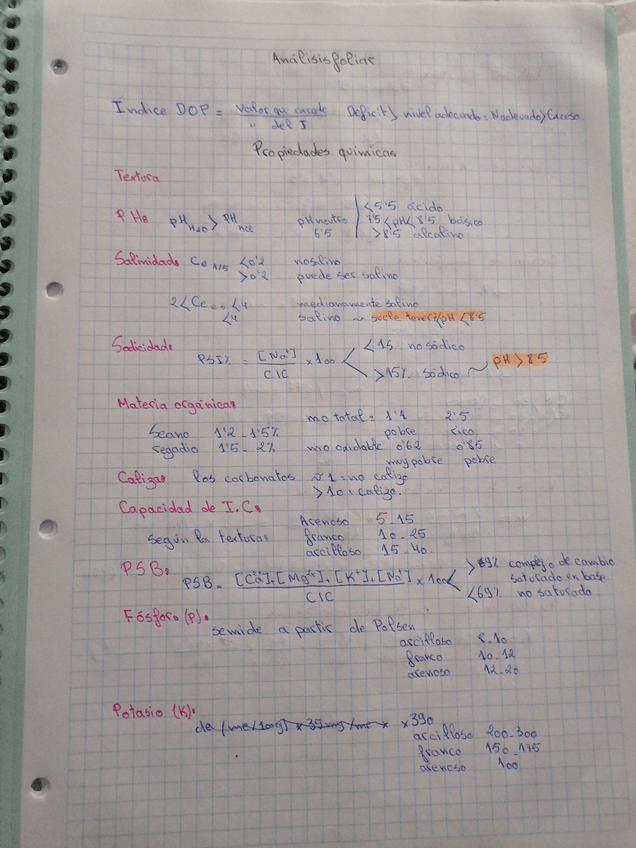 Análisis foliar
Índice DOP = Valor que excede / " del I Déficit > nivel adecuado = N adecuado > Exceso
Propiedades químicas
Textura
pH: pH H2O > pH KCl pH neutro 6'5 <5'5 ácido
7'5 < pH < 8'5 básico
>8'5 alcalino
Salinidad: Ce 1/5 <0'2 no slino
>0'2 puede ser salino
2 < Ce es < 4 medianamente salino
<4 salino ~ suele tener pH < 8'5
Sodicidad:
PSI% = [Na+] / CIC × 100 < 15 no sódico
>15% sódico ~ pH > 8'5
Materia orgánica:
mo total = 1'1 2'5
Secano 1'2 - 1'5% pobre rico
regadio 1'5 - 2% mo oxidable 0'62 0'85
muy pobre pobre
Caliza: los carbonatos 1 = no calizo
> 10 = calizo.
Capacidad de I.C:
Según la textura: Arenoso 5-15
franco 10-25
arcilloso 15-40
PSB:
PSB = [Ca2+]+[Mg2+]+[K+]+[Na+] / CIC × 100 >89% complejo de cambio
saturado en base
<69% no saturado
Fósforo (P):
se mide a partir de Polsen
arcilloso 8-10
franco 10-12
arenoso 12-20
Potasio (K):
de × 390
arcilloso 200-300
franco 150-175
arenoso 100